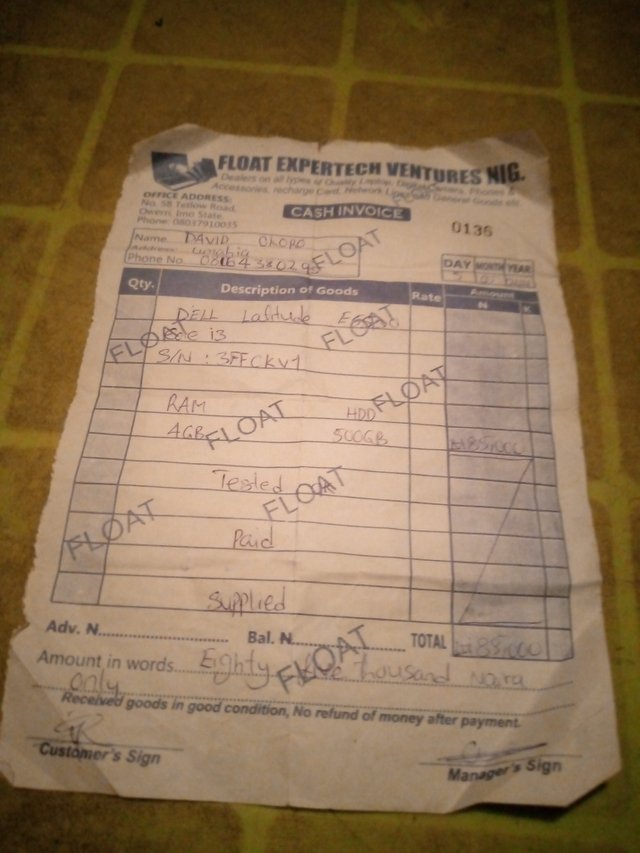 FLOAT EXPERTECH VENTURES NIG.
Dealers on all types of Quality Laptop, Phones &
Accessories, recharge Card, Network General Goods etc.
OFFICE ADDRESS:
No. 58 Tetlow Road,
Owerri, Imo State.
Phone: 08037910035
CASH INVOICE
0136
Name. DAVID OKORO
Address:
Phone No.
FLOAT
DAY MONTH YEAR
Qty. Description of Goods Rate Amount
N K
DELL Latitude
i3
FLOAT FLOAT
S/N : 3FFCKV1
RAM HDD
FLOAT
4GB 500GB ₦85,000
FLOAT
Tested OK
FLOAT
FLOAT
Paid
Supplied
Adv. N. Bal. N. TOTAL ₦85,000
FLOAT
Amount in words Eighty five thousand Naira
only
Received goods in good condition, No refund of money after payment.
Customer's Sign Manager's Sign